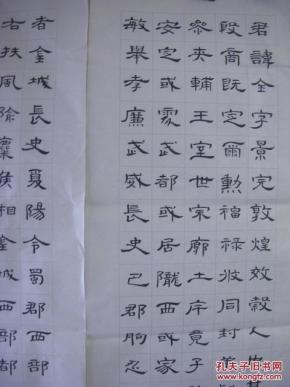 君諱全字景完敦煌效穀人也
殷商既定爾勳福祿攸同封弟
參夾輔王室世宗廓土斥竟子
安定或處武都或居隴西或家
敏舉孝廉武威長史巴郡朐忍
者金城長史夏陽令蜀郡西部
右扶風隃麋侯相金城西部都
孔夫子旧书网